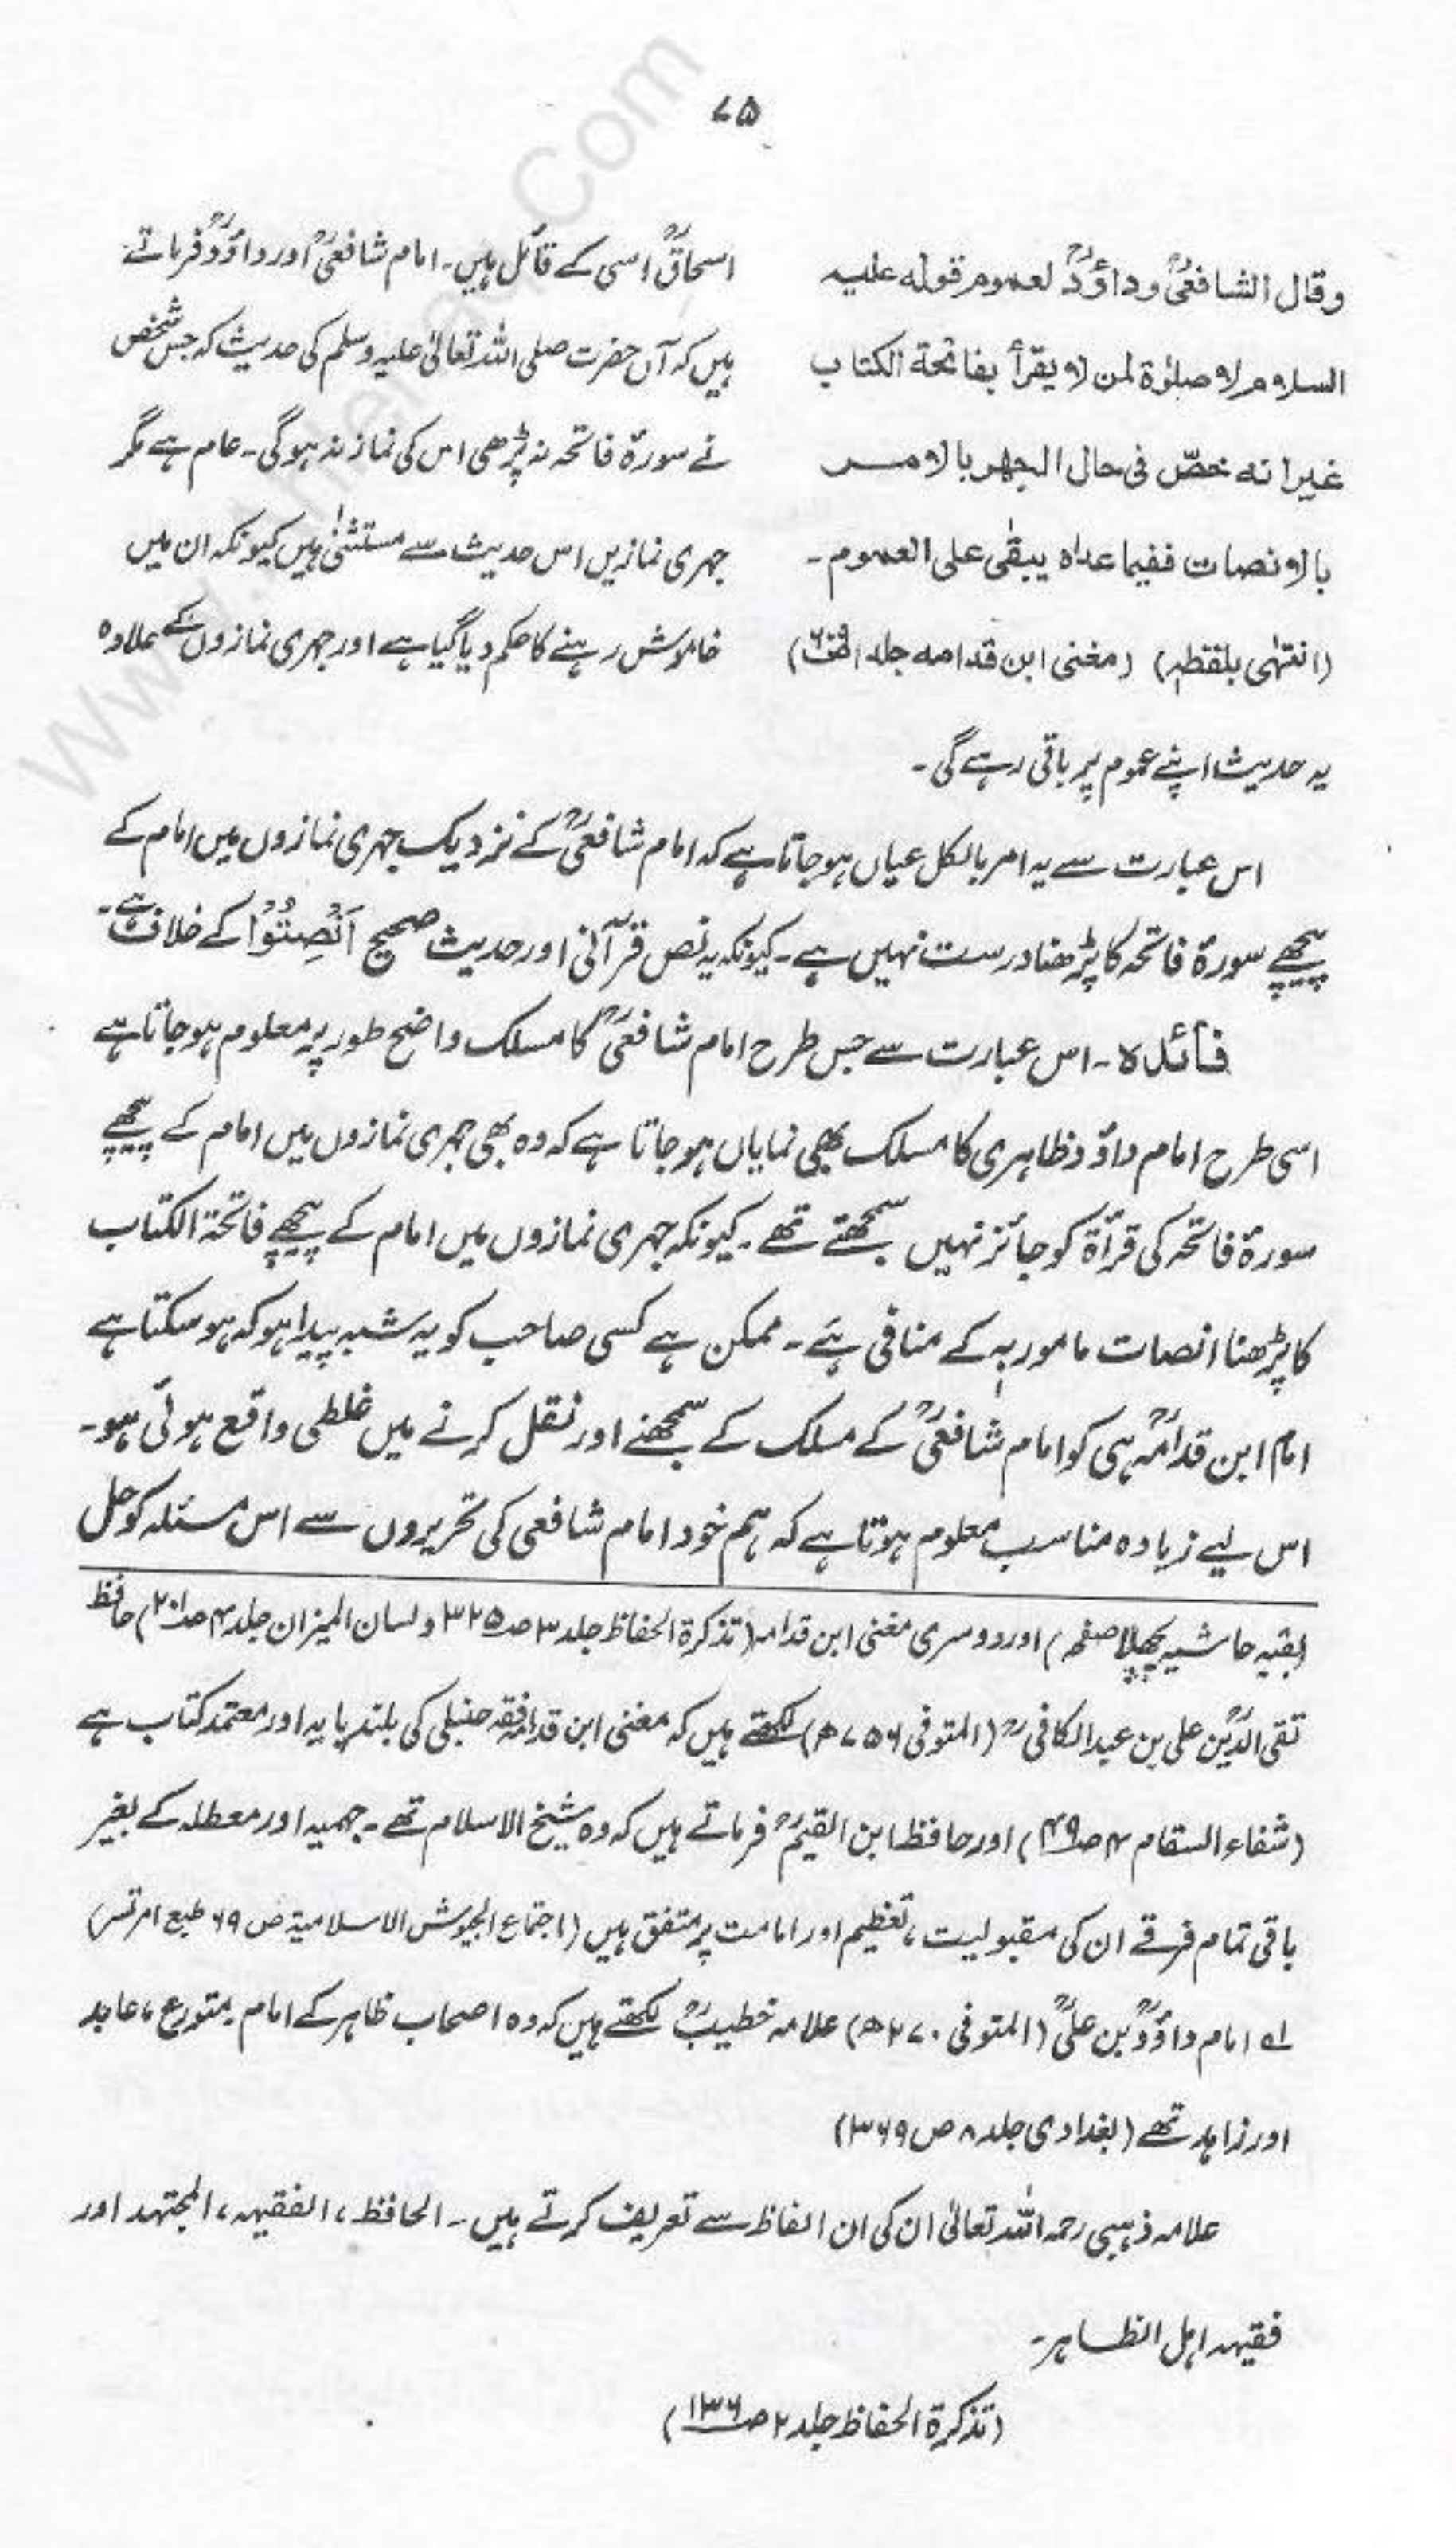 ۷۵
وقال الشافعیؒ وداؤدؒ لعموم قوله علیه
السلام لا صلوٰة لمن لا یقرأ بفاتحة الکتاب
غیر انه خصّ فی حال الجهر بالامر
بالانصات ففیما عداه یبقٰی علی العموم۔
(انتہٰی بلفظہٖ) (مغنی ابن قدامه جلد ۱
اسحاقؒ اسی کے قائل ہیں۔ امام شافعیؒ اور داؤدؒ فرماتے
ہیں کہ آں حضرت صلی اللہ تعالیٰ علیہ وسلم کی حدیث کہ جس شخص
نے سورۃ فاتحہ نہ پڑھی اس کی نماز نہ ہوگی۔ عام ہے مگر
جہری نمازیں اس حدیث سے مستثنیٰ ہیں کیونکہ ان میں
خاموش رہنے کا حکم دیا گیا ہے اور جہری نمازوں کے علاوہ
یہ حدیث اپنے عموم پر باقی رہے گی۔
اس عبارت سے یہ امر بالکل عیاں ہو جاتا ہے کہ امام شافعیؒ کے نزدیک جہری نمازوں میں امام کے
پیچھے سورۃ فاتحہ کا پڑھنا درست نہیں ہے۔ کیونکہ یہ نص قرآنی اور حدیث صحیح اَنْصِتُوْا کے خلاف ہے۔
فائدہ۔ اس عبارت سے جس طرح امام شافعیؒ کا مسلک واضح طور پر معلوم ہو جاتا ہے
اسی طرح امام داؤد ظاہری کا مسلک بھی نمایاں ہو جاتا ہے کہ وہ بھی جہری نمازوں میں امام کے پیچھے
سورۃ فاتحہ کی قرأۃ کو جائز نہیں سمجھتے تھے۔ کیونکہ جہری نمازوں میں امام کے پیچھے فاتحۃ الکتاب
کا پڑھنا انصات مامور بہٖ کے منافی ہے۔ ممکن ہے کسی صاحب کو یہ شبہ پیدا ہو کہ ہو سکتا ہے
امام ابن قدامہؒ ہی کو امام شافعیؒ کے مسلک کے سمجھنے اور نقل کرنے میں غلطی واقع ہوئی ہو۔
اس لیے زیادہ مناسب معلوم ہوتا ہے کہ ہم خود امام شافعی کی تحریروں سے اس مسئلہ کو حل
(بقیہ حاشیہ پچھلا صفحہ) اور دوسری مغنی ابن قدامہ (تذکرۃ الحفاظ جلد ۳ صـ ۳۲۵ و لسان المیزان جلد ۴ صـ ۲۰۱) حافظ
تقی الدینؒ علی بن عبد الکافیؒ (المتوفی ۷۵۶ھ) لکھتے ہیں کہ مغنی ابن قدامہ فقہ حنبلی کی بلند پایہ اور معتمد کتاب ہے
(شفاء السقام صـ ۴۹) اور حافظ ابن القیمؒ فرماتے ہیں کہ وہ شیخ الاسلام تھے۔ جہمیہ اور معطلہ کے بغیر
باقی تمام فرقے ان کی مقبولیت، تعظیم اور امامت پر متفق ہیں (اجتماع الجیوش الاسلامیۃ ص ۶۹ طبع امرتسر)
۱ے امام داؤدؒ بن علیؒ (المتوفی ۲۷۰ھ) علامہ خطیبؒ لکھتے ہیں کہ وہ اصحاب ظاہر کے امام۔ متورع، عابد
اور زاہد تھے (بغدادی جلد ۸ ص ۳۶۹)
علامہ ذہبی رحمہ اللہ تعالیٰ ان کی ان الفاظ سے تعریف کرتے ہیں۔ الحافظ، الفقیہ، المجتہد اور
فقیہ اہل الظاہر۔
(تذکرۃ الحفاظ جلد ۲ صـ ۱۳۶)